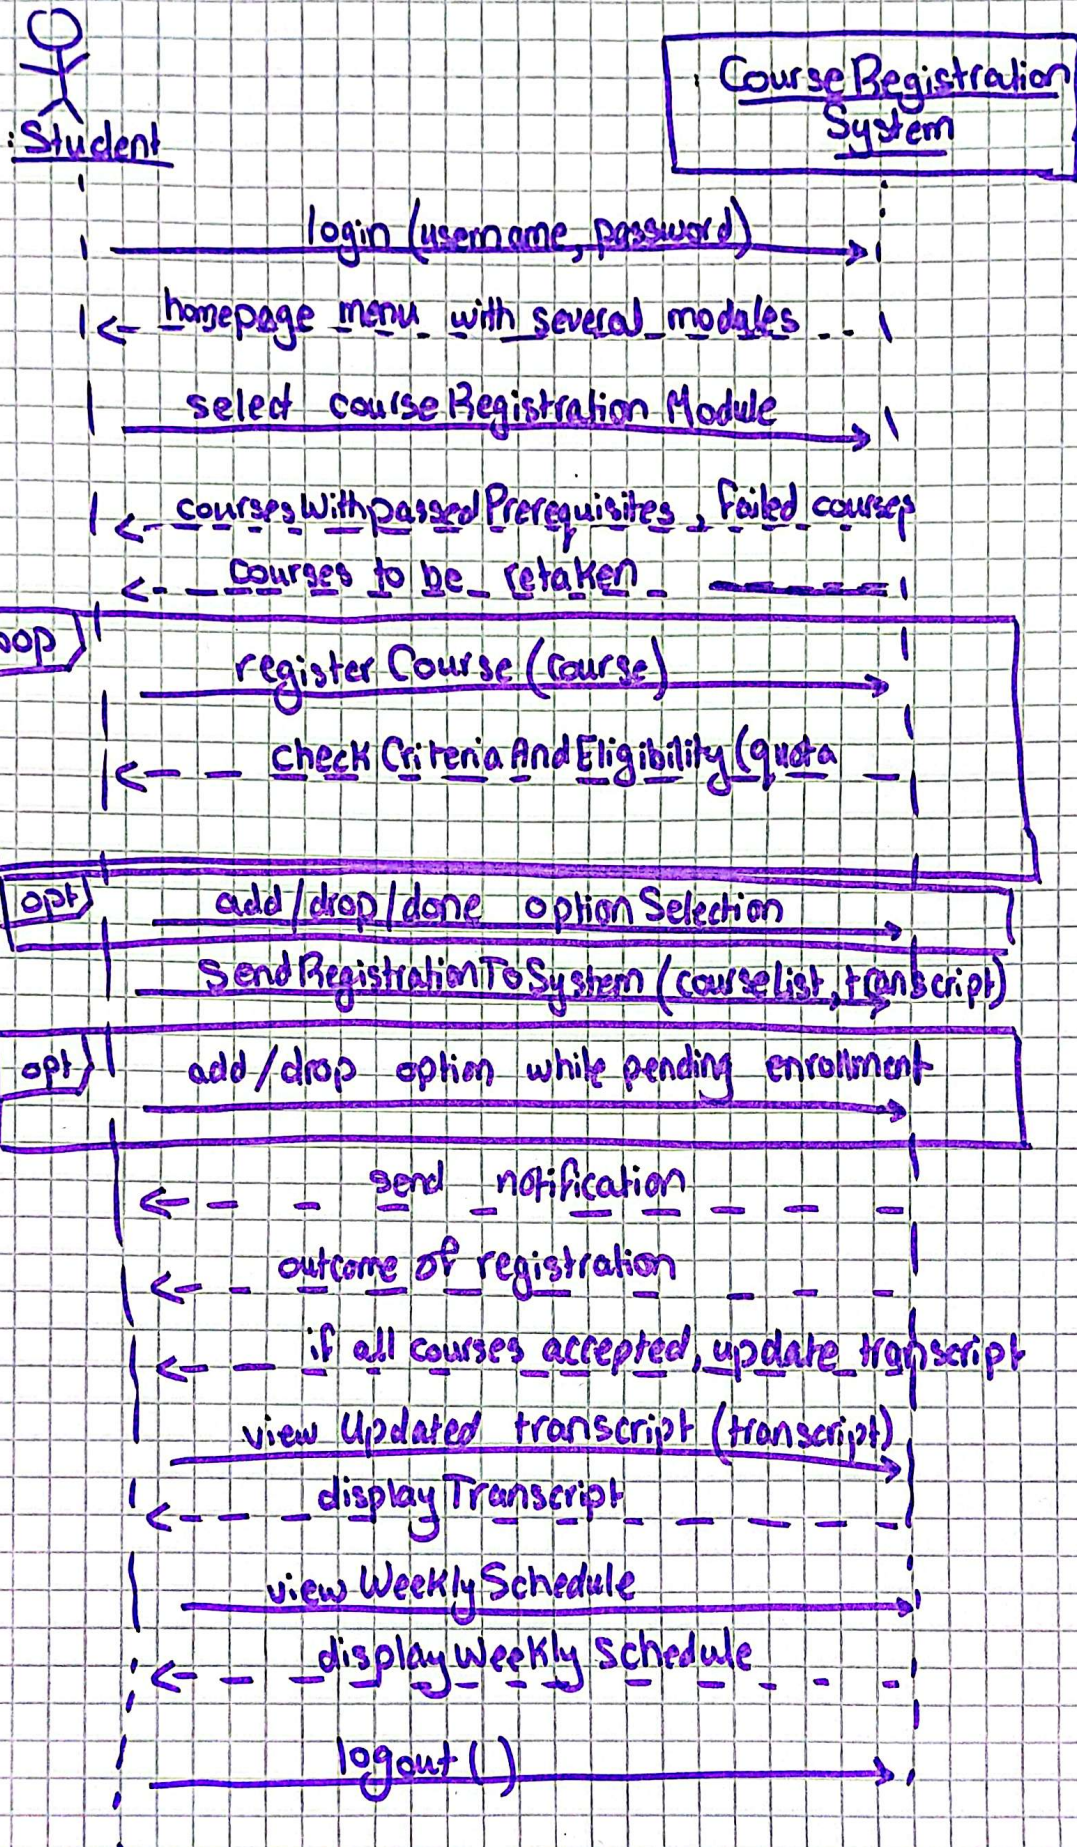 :Student
: Course Registration
System
login (username, password)
homepage menu with several modules
select courseRegistration Module
coursesWithpassedPrerequisites, failed courses
courses to be retaken
oop
register Course (course)
checkCriteriaAndEligibility(quota
opt
add/drop/done optionSelection
SendRegistrationToSystem (courselist, transcript)
opt
add/drop option while pending enrollment
send notification
outcome of registration
if all courses accepted, update transcript
view Updated transcript (transcript)
displayTranscript
view WeeklySchedule
displayWeekly Schedule
logout ( )